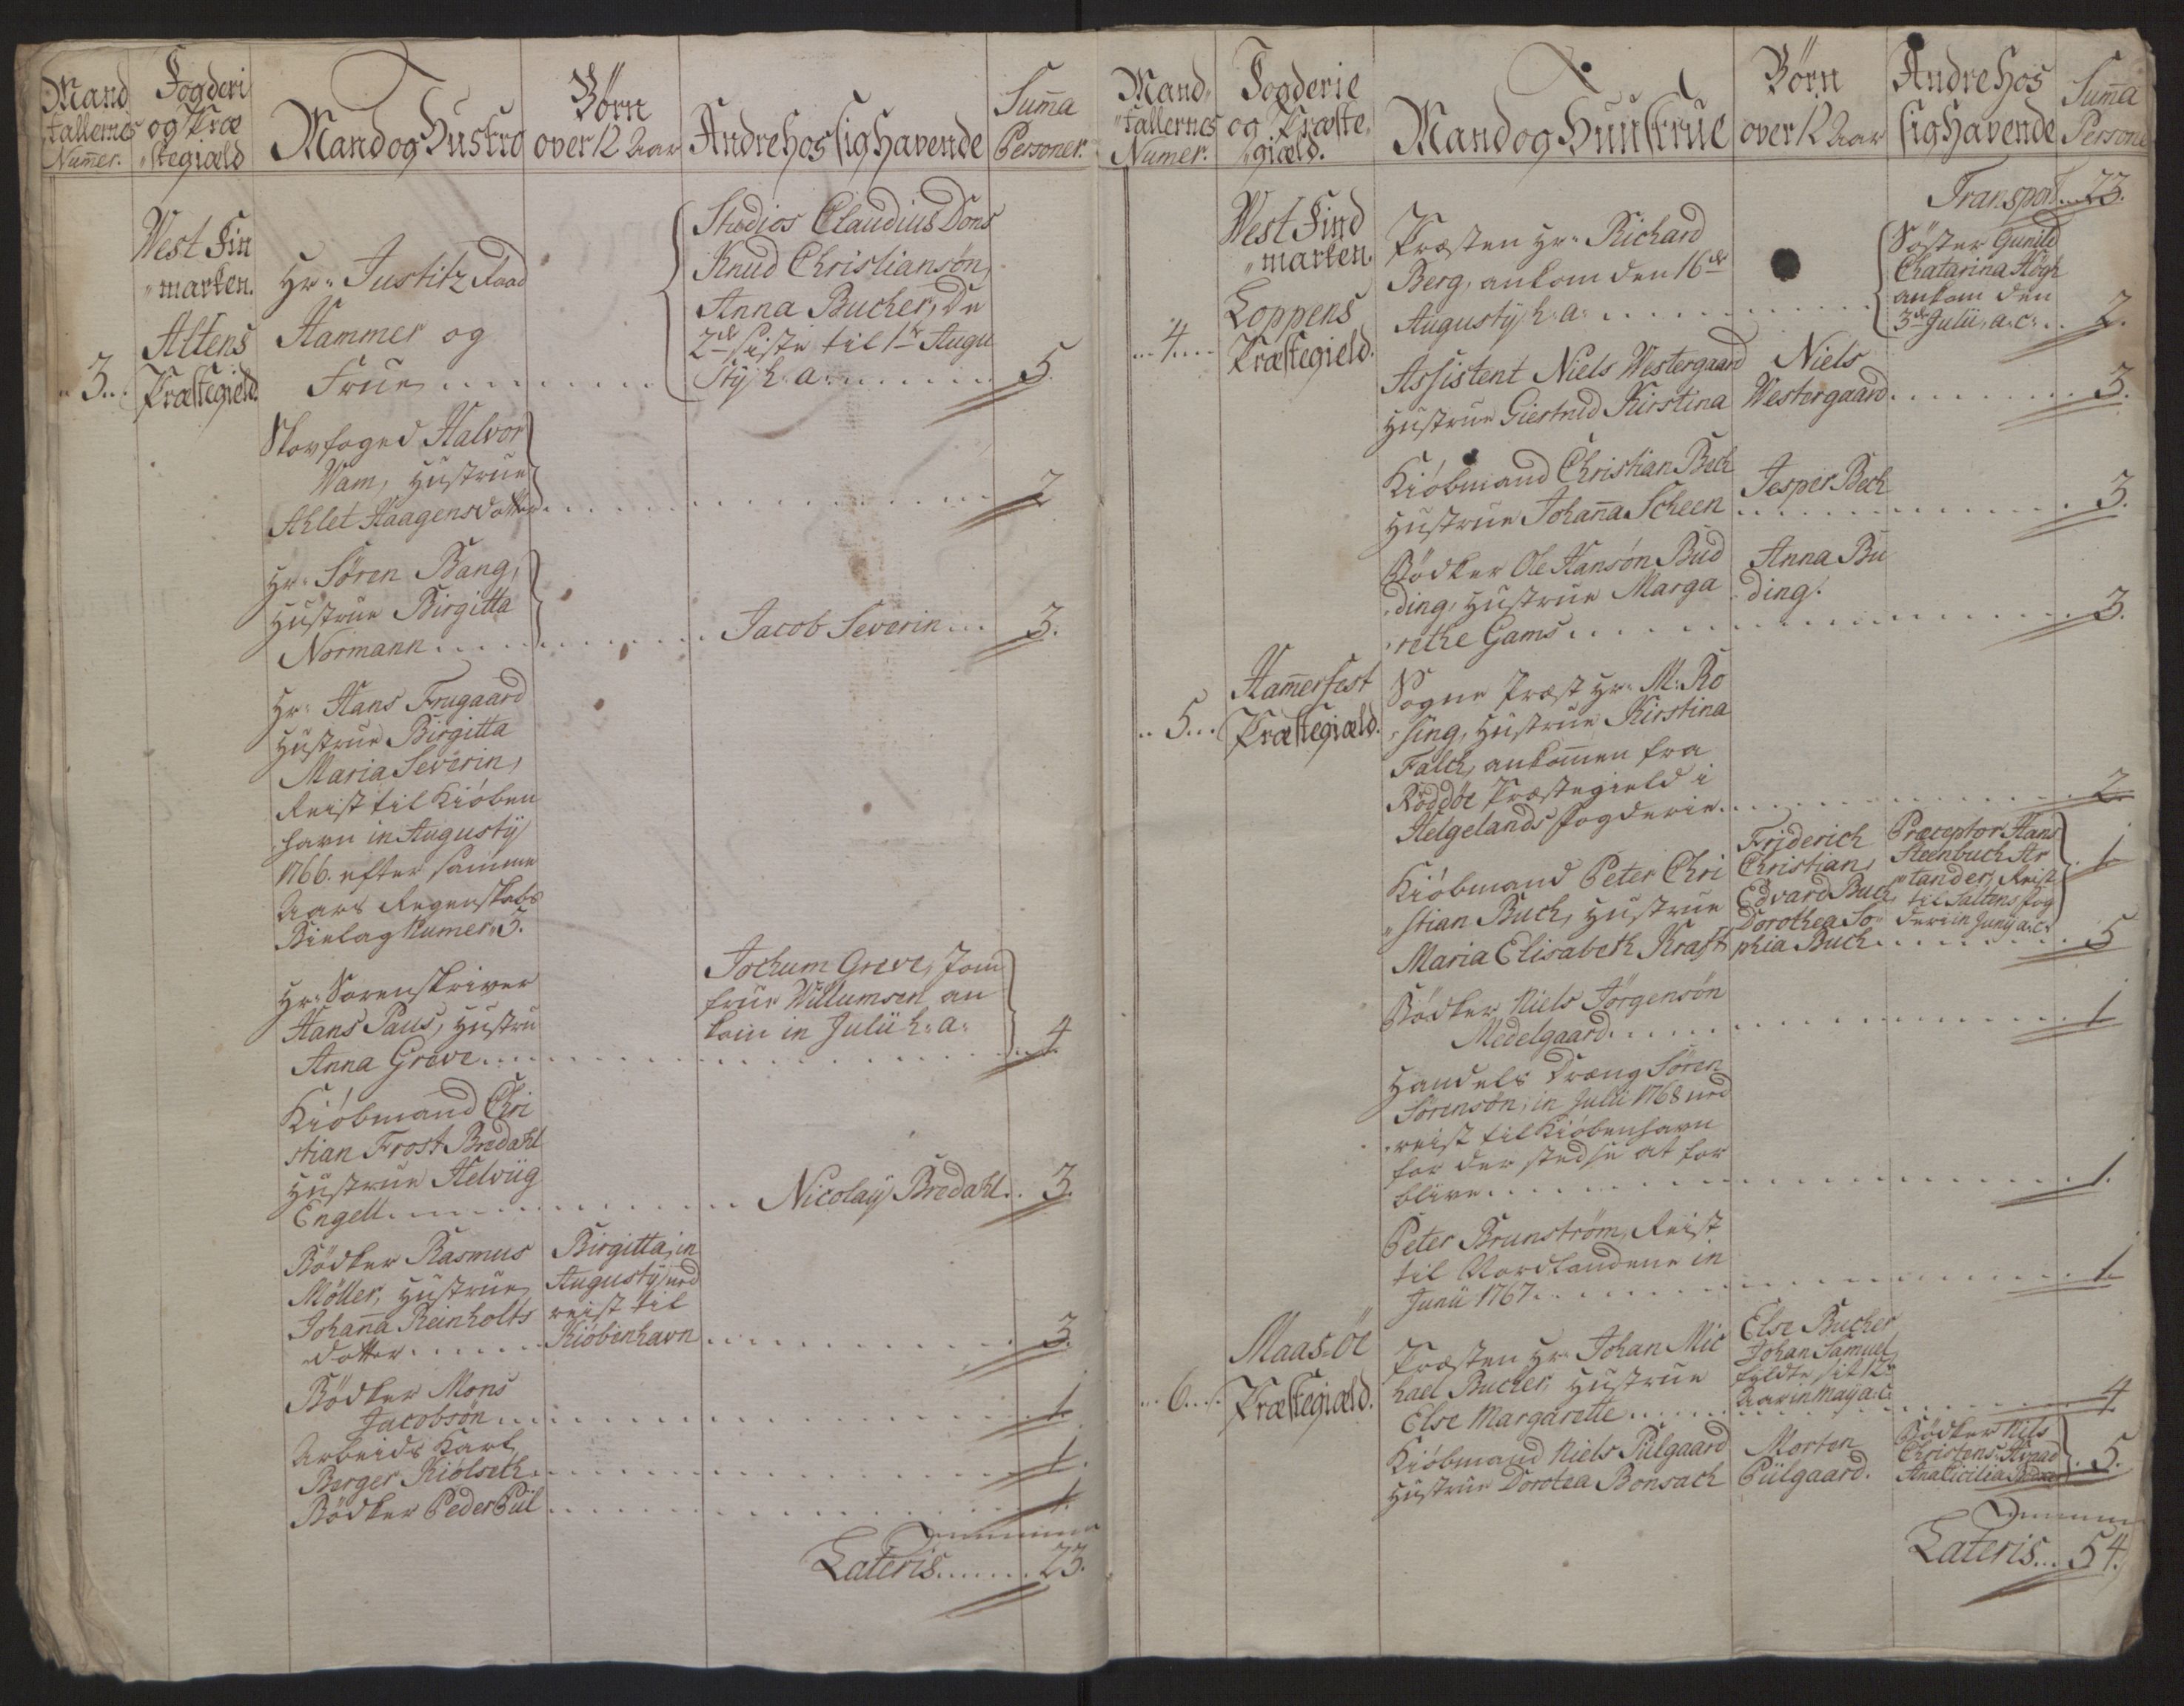 Mand
tallernes
Numer.
Fogderi
og Præ
stegiæld
Mand og Hustro
Börn
over 12 Aar
Andre hos sig havende
Suma
Personer.
West Fin
"marken.
Altens
Præstegield.
3.
Hr. Justitz Raad
Hammer og
Frue
Studios Claudius Dons
Knud Christiansøn,
Anna Bucher, De
2de siste til 1te Augu
stÿ h: a:
5.
Skovfoged Halvor
Wam, Hustrue
Ahlet Haagensdotter
2
Hr. Søren Bang,
Hustrue Birgitta
Normann
Jacob Severin
3.
Hr. Hans Frugaard
Hustrue Birgitta
Maria Severin,
Reist til Kióben
havn in Augustÿ
1766. efter samme
Aars Regenskabs
Bielag Numer. 5.
Hr. Sorenskriver
Hans Paus, Hustru
Anna Greve
Jochum Greve, Jom
frue Willumsen an
kom in Julii h: a:
4
Kióbmand Chri
stian Frost Bredahl
Hustrue Helvig
Engell
Nicolaÿ Bredahl
3.
Bödker Rasmus
Möller, Hustrue
Johana Reinholts
dotter
Birgitta, in
Augustÿ ned
reist til
Kiöbenhavn
3.
Bödker Mons
Jacobsön
1.
Arbeids Karl
Berger Kiölseth
1.
Bödker Peder Piil
1.
Lateris 23.
Mand
"tallernes
Numer.
Fogderie
og Præste
giæld.
Mand og Huustrue
Börn
over 12 Aar
Andre hos
sig havende
Suma
Persone
Transport 23.
West Find
"marken.
Loppens
Præstegield.
4.
Præsten Hr. Richard
Berg, ankom den 16de
Augustÿ h: a:
Söster Gunild
Chatarina Högh
ankom den
3de Julii, a: c:
2.
Assistent Niels Westergaard
Hustrue Giertrud Kirstina
Niels
Westergaard
3.
Kióbmand Christian Bech
Hustrue Johana Scheen
Jesper Bech
3.
Bödker Ole Hansön Bud
ding, Hustrue Marga
rethe Gams
Anna Bu
ding.
3.
Hamerfest
Præstegiæld.
5.
Sogne Præst Hr. M: Ro
sing, Hustrue Kirstina
Falch, ankomen fra
Röddöe Præstegield i
Helgelands fogderie
2.
Kióbmand Peter Chri
"stian Buch, Hustrue
Maria Elisabeth Kraft
Friderich
Christian,
Edvard Buch,
Dorothea So
phia Buch
Præceptor Hans
Steenbuch Ar
"tander, Reist
til Saltens fog
deri in Junÿ a: c:
1
5
Bödker Niels Jörgensön
Medelgaard
1
Handels Dreng Sören
Sörensön, in Julii 1768 ned
reist til Kióbenhavn
for der stedse at for
blive
1.
Peter Brunström, Reist
til Nordlandene in
Junii 1767
1
Maas-öe
Præstegiæld.
6.
Præsten Hr. Johan Mic
hael Bucher, Hustrue
Else Margarette
Else Bucher
Johan Samuel
fyldte sit 12te
Aar in Maÿ a: c:
4
Kióbmand Niels Piilgaard
Hustrue Dorotea Bonsach
Morten
Piilgaard.
Bödker Nils
Christens:
Ana Cicilia
5.
Lateris 54.